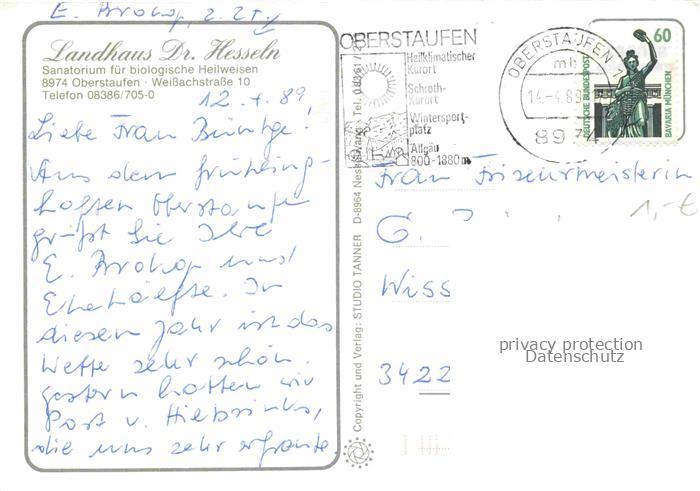 E. Prokop, z. Zt.
Landhaus Dr. Hesseln
Sanatorium für biologische Heilweisen
8974 Oberstaufen · Weißachstraße 10
Telefon 08386/705-0
12.4.89,
Liebe Frau
Aus dem frühling-
haften Oberstaufen
grüßt Sie Ihre
E. Prokop und
Ehehälfte. In
diesem Jahr ist das
Wetter sehr schön.
Gestern hatten wir
Post v.
die uns sehr erfreute.
Copyright und Verlag: STUDIO TANNER D-8964 Nesselwang · Tel. 08361/
OBERSTAUFEN
Heilklimatischer
Kurort
Schroth-
Kurort
Wintersport-
platz
Allgäu
800-1880m
OBERSTAUFEN 1
mb
14.-4.89
8974
60
DEUTSCHE BUNDESPOST
BAVARIA MÜNCHEN
Frau Friseurmeisterin
1,-€
G.
Wiss
3422
privacy protection
Datenschutz